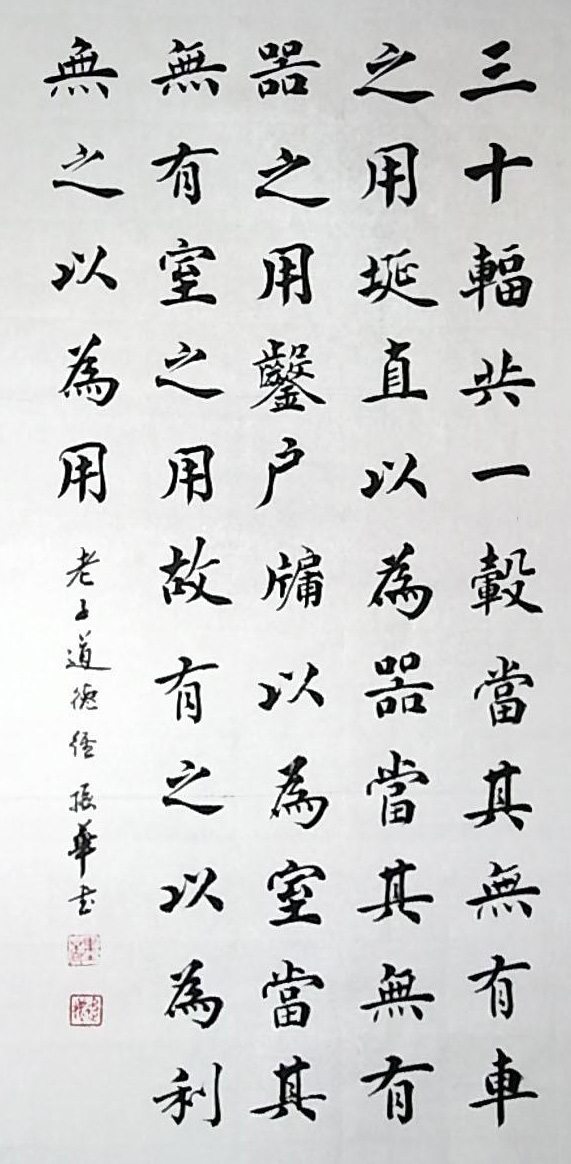 三十輻共一轂當其無有車
之用埏直以為器當其無有
器之用鑿户牖以為室當其
無有室之用故有之以為利
無之以為用
老子道德經 振華书